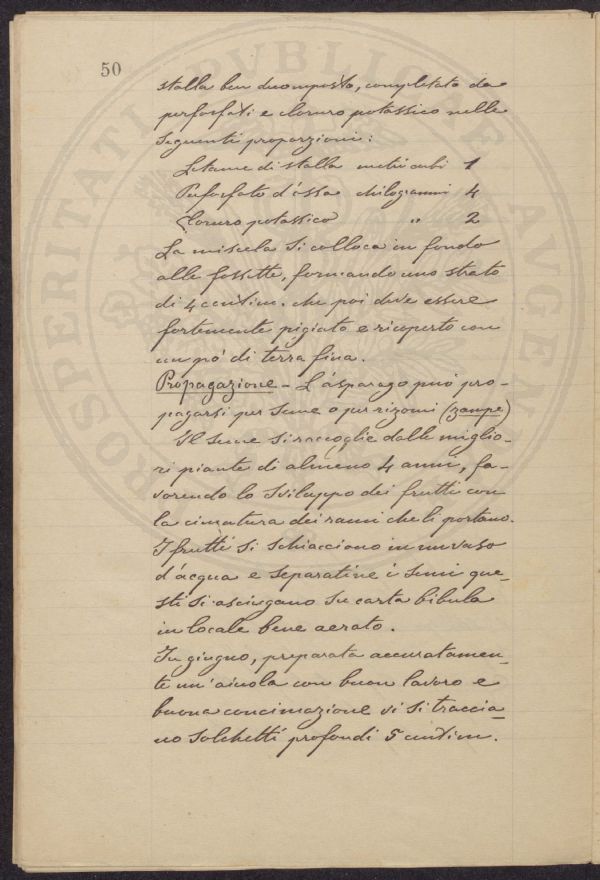 50
stalla ben decomposto, completato da
perfosfati e cloruro potassico nelle
seguenti proporzioni:
Letame di stalla metri cubi 1
Perfosfato d'ossa chilogrammi 4
Cloruro potassico " 2
La miscela si colloca in fondo
alle fossette, formando uno strato
di 4 centim. che poi deve essere
fortemente pigiato e ricoperto con
un pó di terra fina.
Propagazione - L'asparago può pro-
pagarsi per seme o per rizomi (zampe)
Il seme si raccoglie dalle miglio-
ri piante di almeno 4 anni, fa-
vorendo lo sviluppo dei frutti con
la cimatura dei rami che li portano.
I frutti si schiacciano in un vaso
d'acqua e separatine i semi que-
sti si asciugano su carta bibula
in locale bene aerato.
In giugno, preparata accuratamen-
te un'aiuola con buon lavoro e
buona concimazione vi si traccia-
no solchetti profondi 5 centim.
PROSPERITATI PVBLICAE AVGENDAE